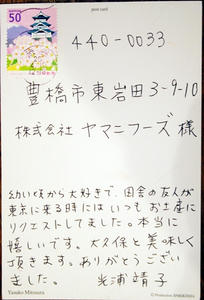 post card
50
440-0033
豊橋市東岩田3-9-10
株式会社 ヤマニフーズ 様
幼い頃から大好きで、田舎の友人が
東京に来る時にはいつもお土産に
リクエストしてました。本当に
嬉しいです。大久保と美味しく
頂きます。ありがとうござい
ました。 光浦靖子
Yasuko Mitsuura